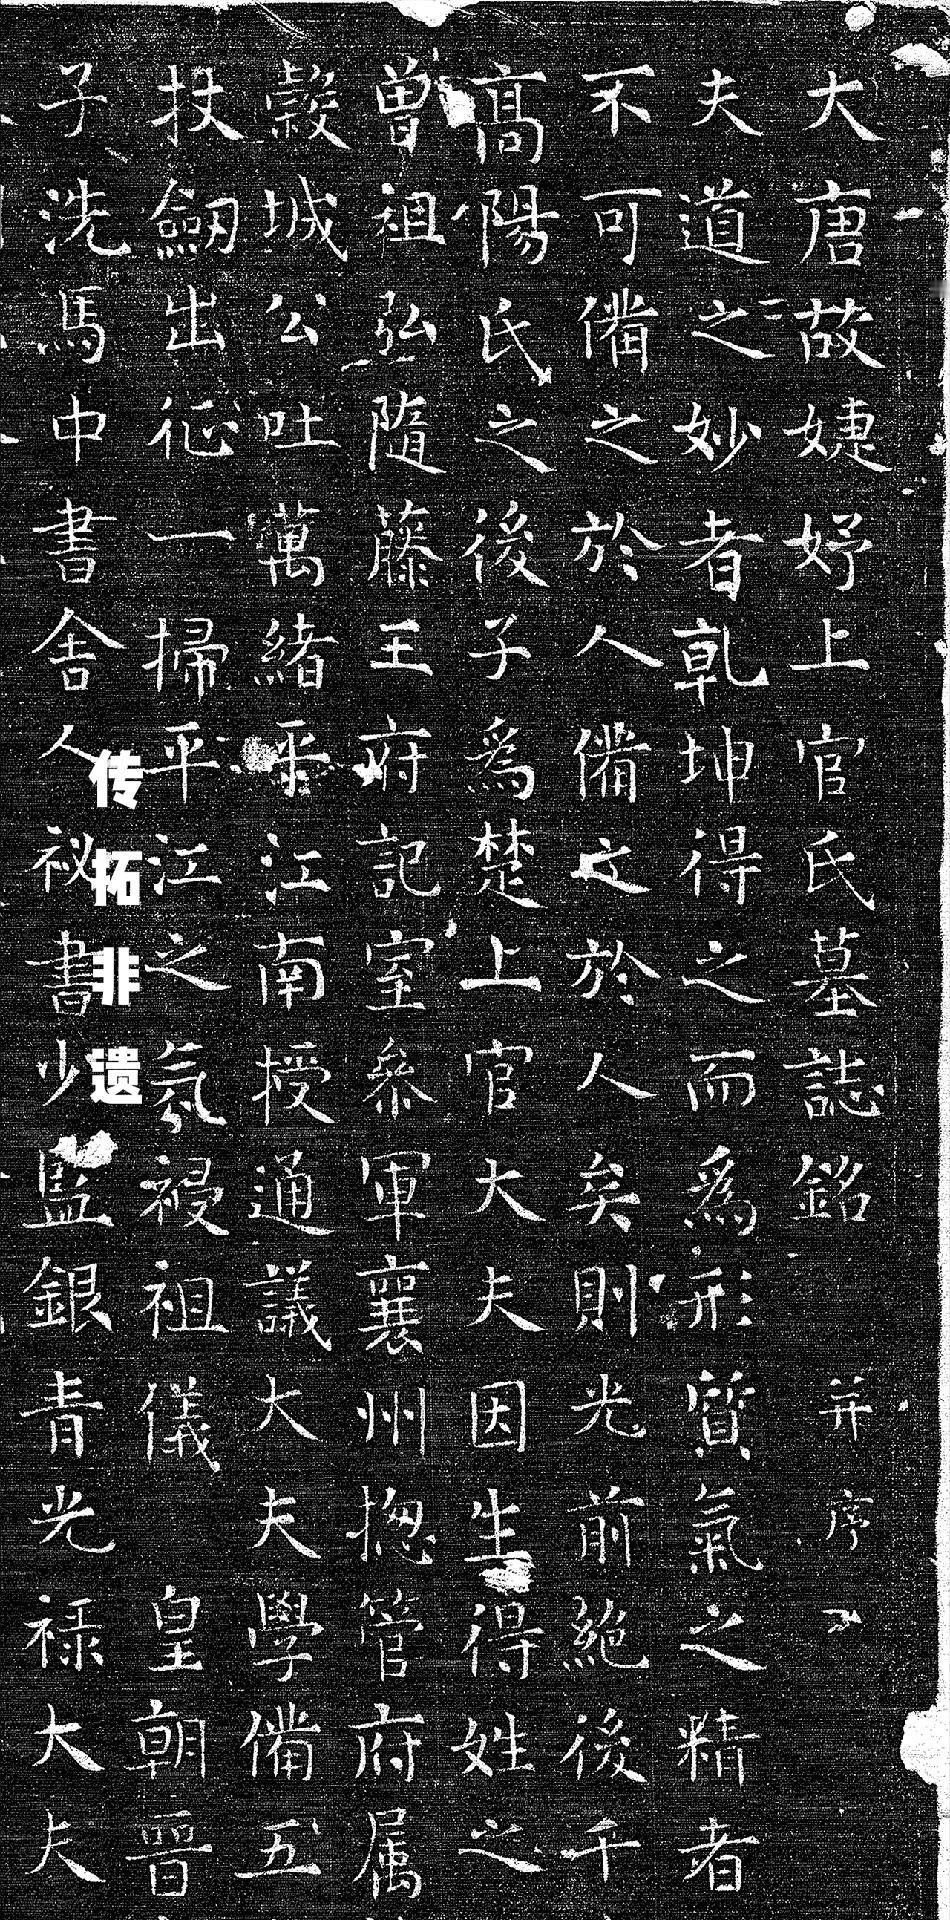 大唐故婕妤上官氏墓誌銘 并序
夫道之妙者乹坤得之而為形質氣之精者
不可備之於人備之於人矣則光前絕後千
高陽氏之後子為楚上官大夫因生得姓之
曾祖弘隨藤王府記室參軍襄州捴管府属
縠城公吐萬緒平江南授通議大夫學備五
杖劒出征一掃平江之氛祲祖儀 皇朝晉
子洗馬中書舍人祕書少監銀青光禄大夫
传拓非遗